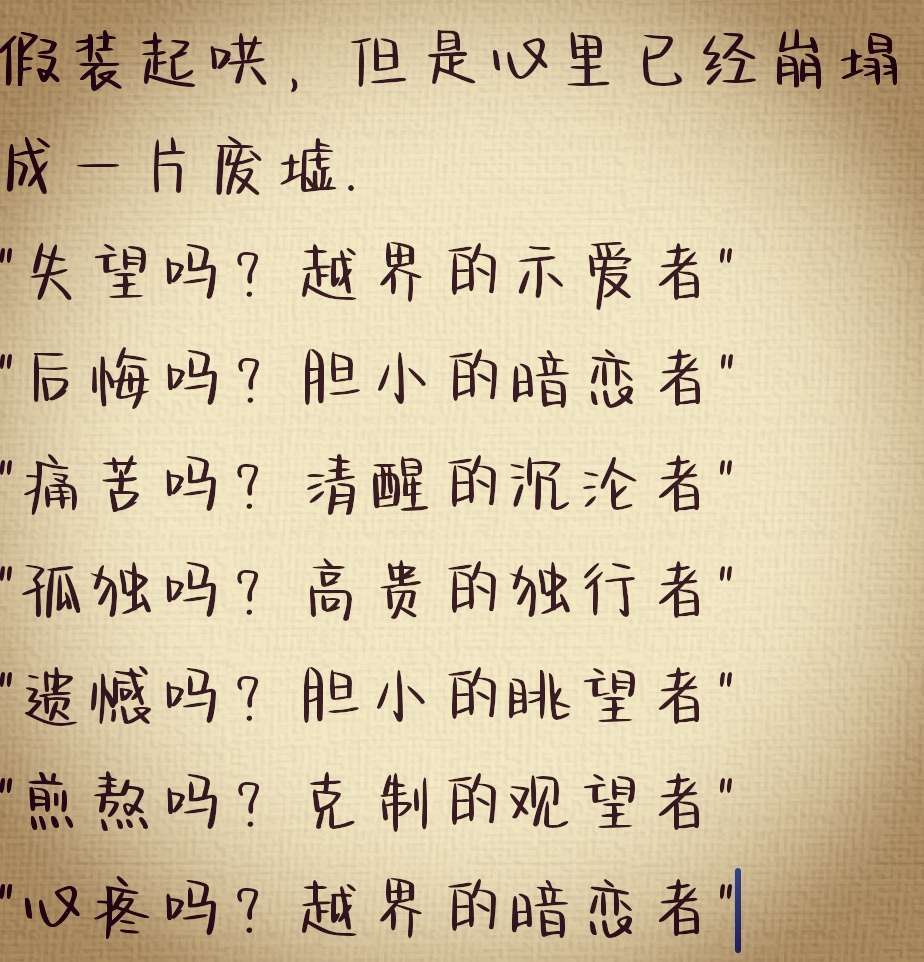 假装起哄，但是心里已经崩塌
成一片废墟.
"失望吗？越界的示爱者"
"后悔吗？胆小的暗恋者"
"痛苦吗？清醒的沉沦者"
"孤独吗？高贵的独行者"
"遗憾吗？胆小的眺望者"
"煎熬吗？克制的观望者"
"心疼吗？越界的暗恋者"